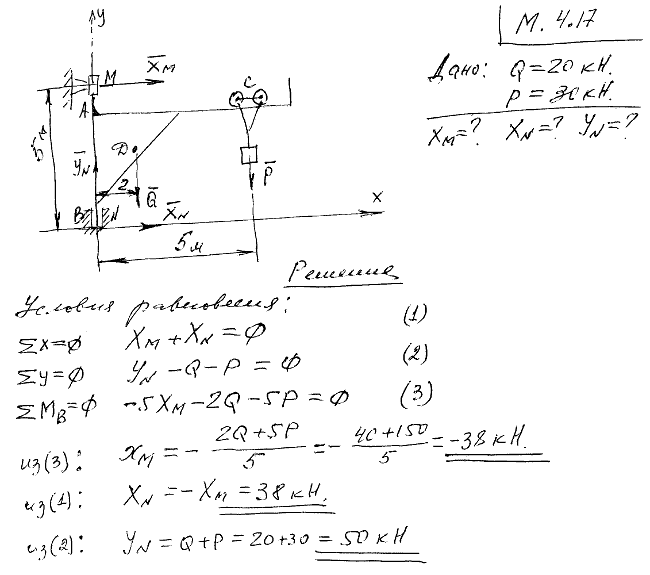 М. 4.17
Дано: Q=20кН.
P=30кН.
X_M=? X_N=? Y_N=?
y
M X̄_M
A
C
5м
D
Ȳ_N
2
Q̄
P̄
B N X̄_N
x
5м
Решение
Условия равновесия:
Σx=∅ X_M+X_N=∅ (1)
Σy=∅ Y_N-Q-P=∅ (2)
ΣM_B=∅ -5X_M-2Q-5P=∅ (3)
из(3): X_M=-(2Q+5P)/5=-(40+150)/5=-38кН.
из(1): X_N=-X_M=38кН.
из(2): Y_N=Q+P=20+30=50кН